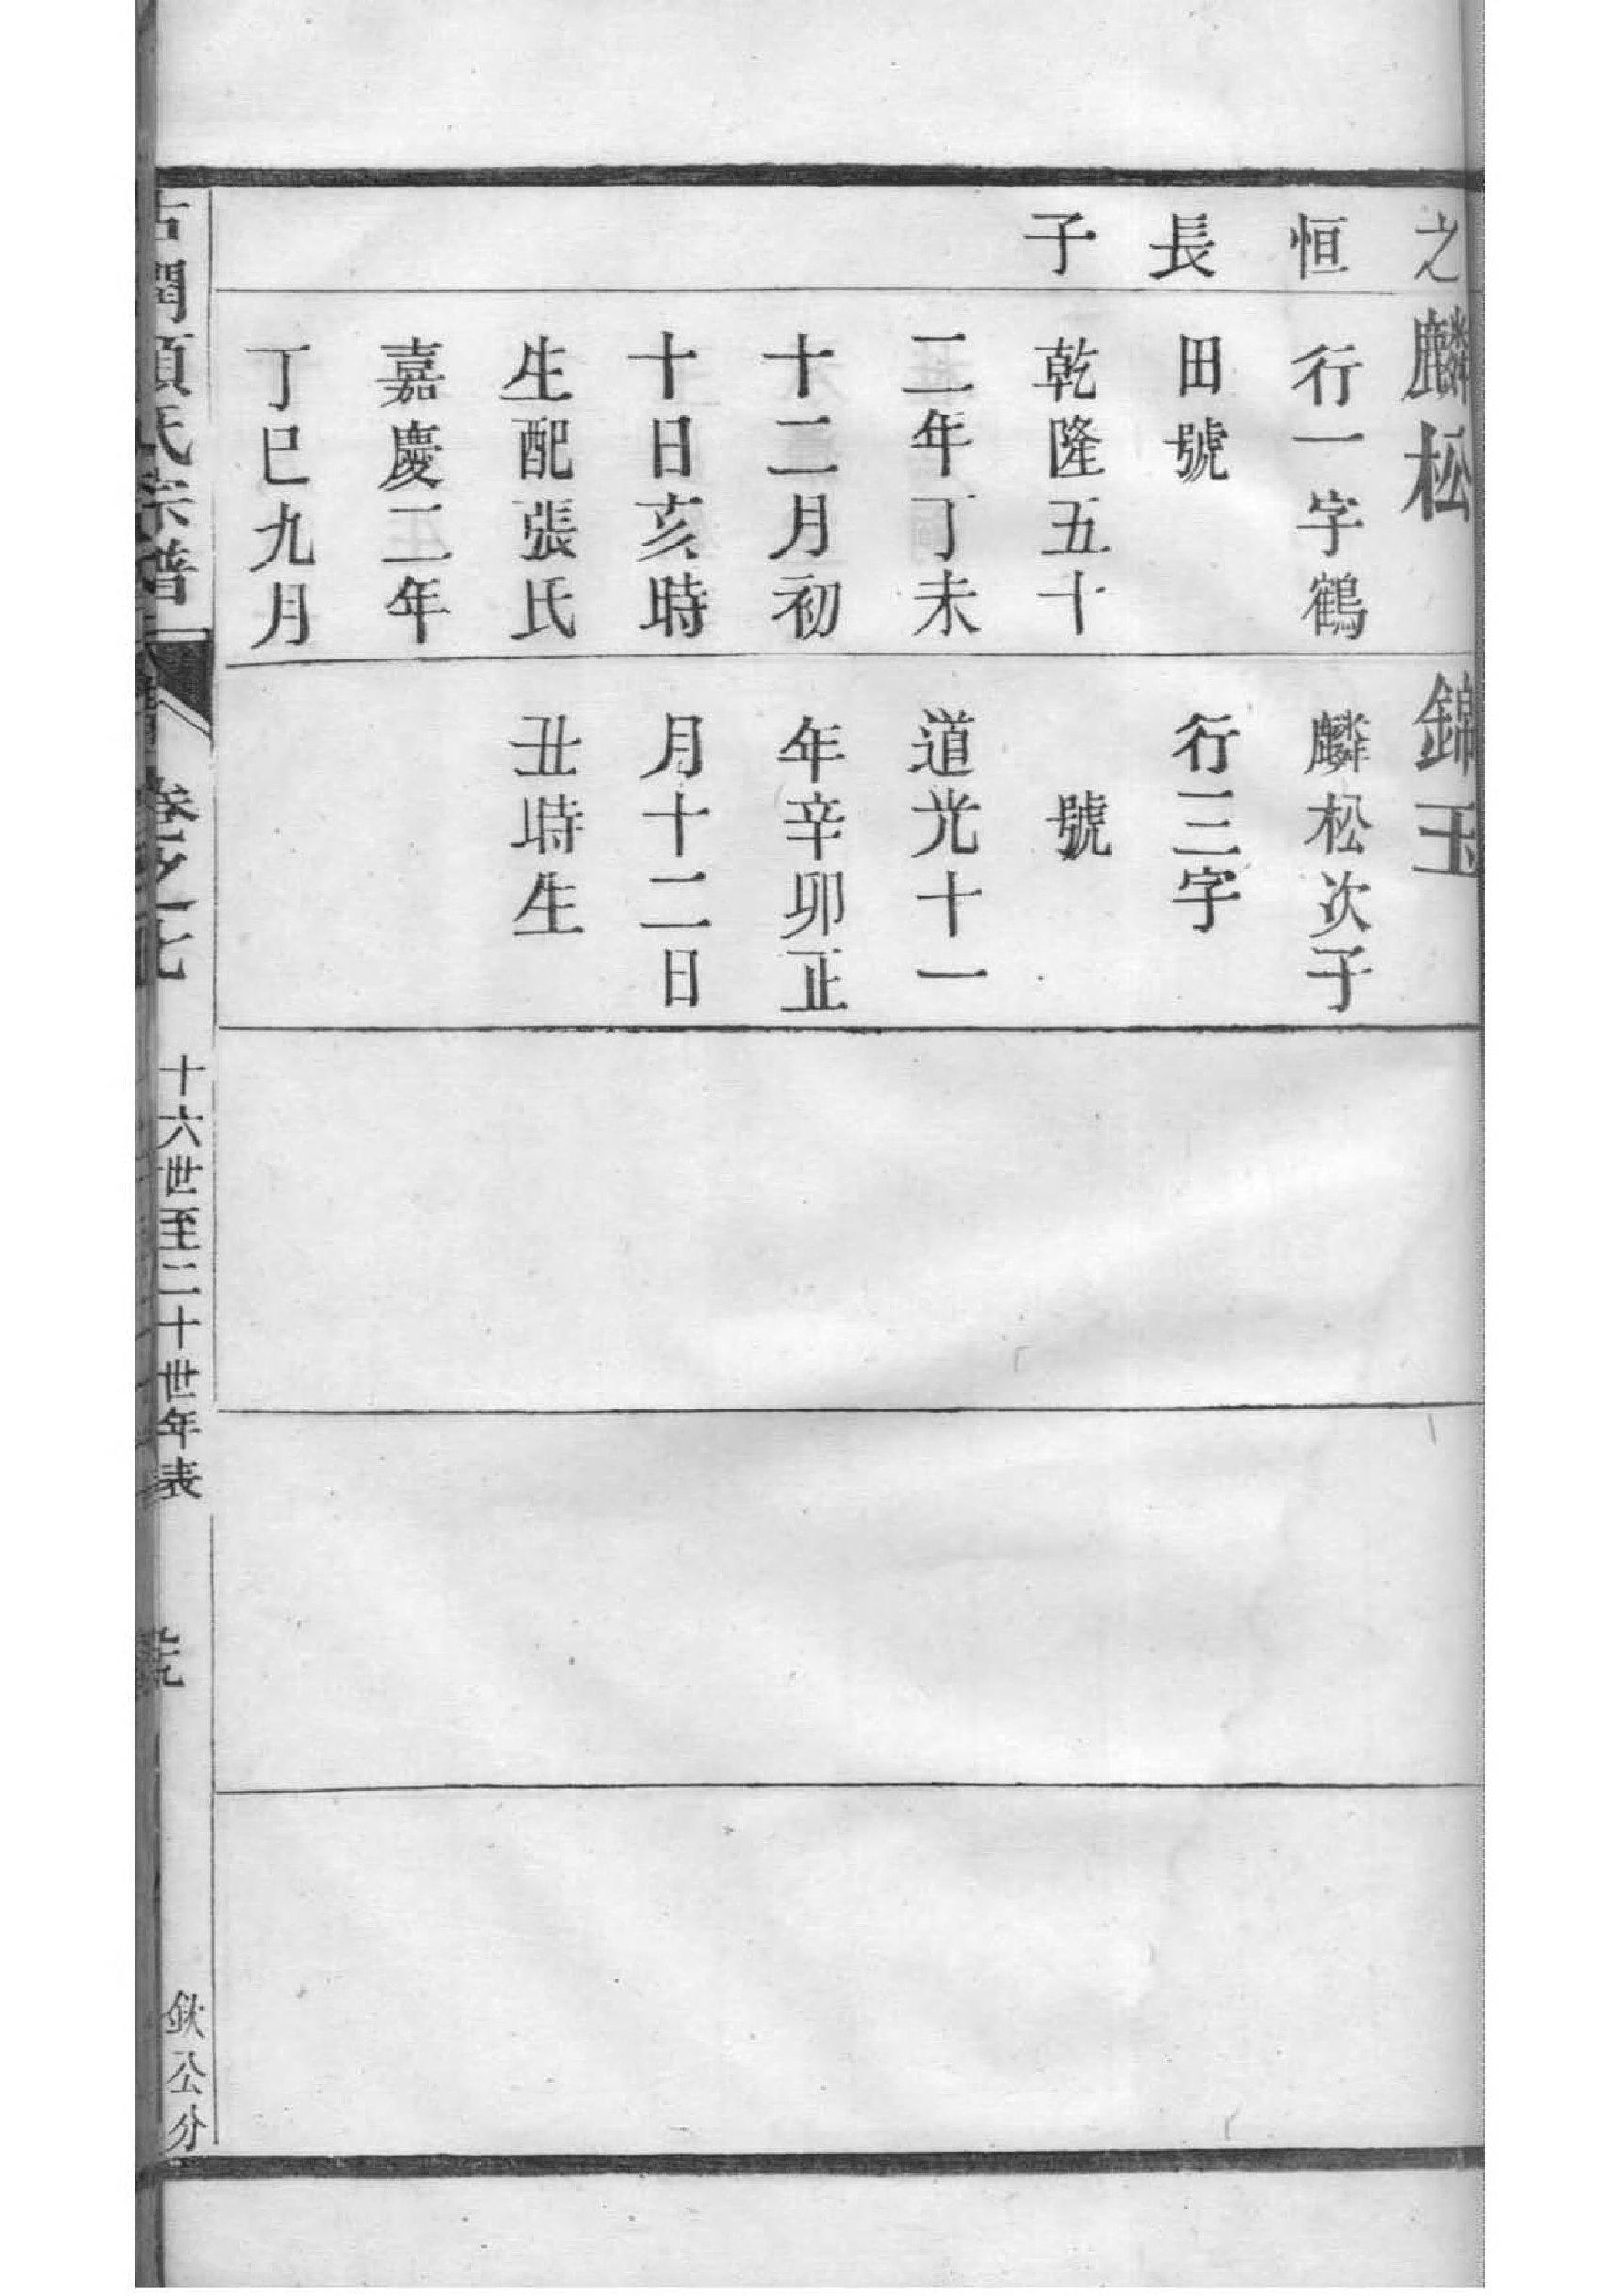 之恒長子
麟松
行一字鶴
田號
乾隆五十
二年丁未
十二月初
十日亥時
生配張氏
嘉慶二年
丁巳九月
錦玉
麟松次子
行三字
號
道光十一
年辛卯正
月十二日
丑時生
項氏宗譜
卷之七
十六世至二十世年表
欽公分